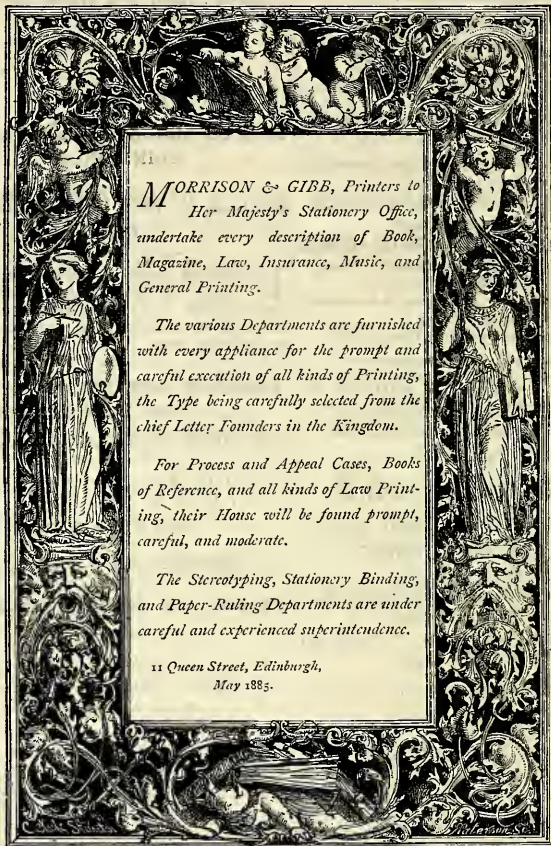 MORRISON & GIBB, Printers to
Her Majesty's Stationery Office,
undertake every description of Book,
Magazine, Law, Insurance, Music, and
General Printing.
The various Departments are furnished
with every appliance for the prompt and
careful execution of all kinds of Printing,
the Type being carefully selected from the
chief Letter Founders in the Kingdom.
For Process and Appeal Cases, Books
of Reference, and all kinds of Law Print-
ing, their House will be found prompt,
careful, and moderate.
The Stereotyping, Stationery Binding,
and Paper-Ruling Departments are under
careful and experienced superintendence.
11 Queen Street, Edinburgh,
May 1885.